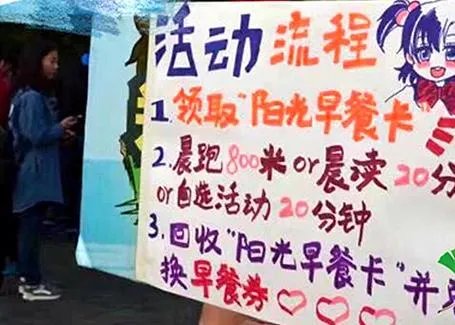 活动流程
1.领取"阳光早餐卡"
2.晨跑800米or晨读20分
or自选活动20分钟
3.回收"阳光早餐卡"并
换早餐券♡♡♡